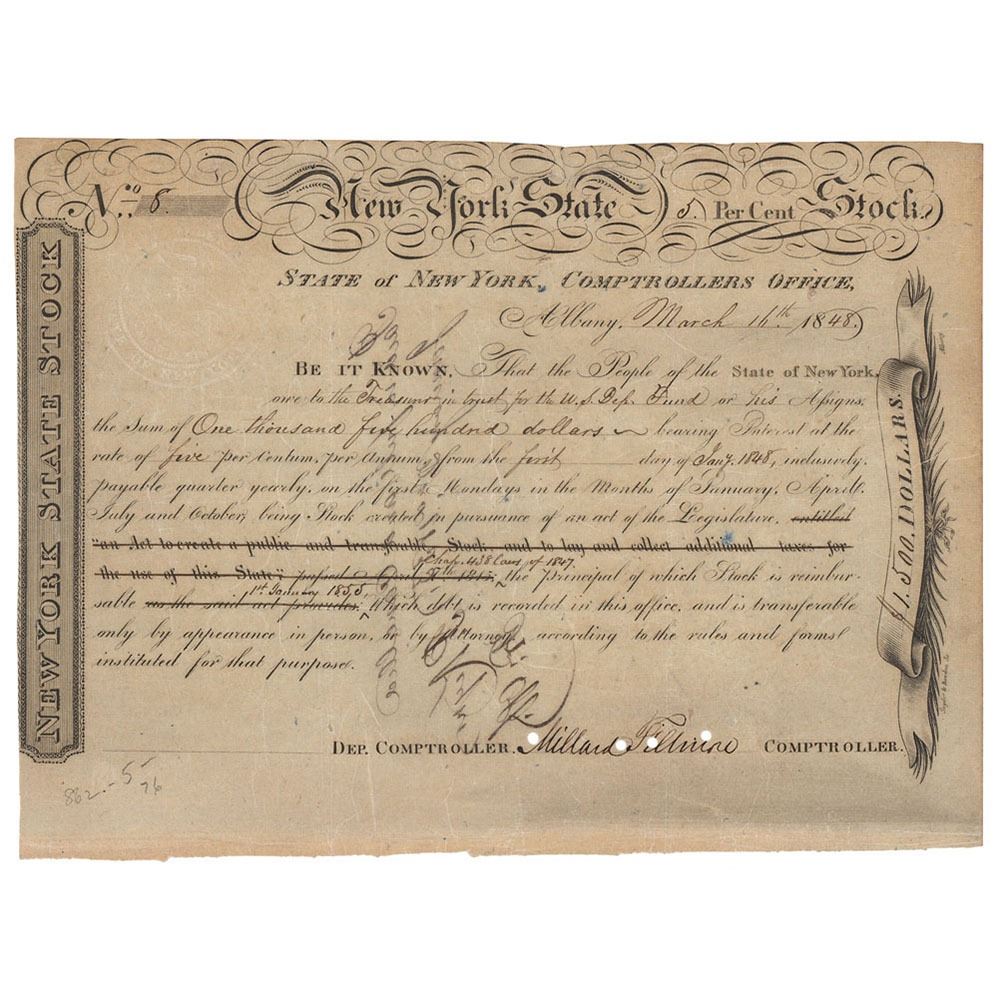 No. 8.
New York State 5. Per Cent Stock.
NEW YORK STATE STOCK
STATE of NEW YORK, COMPTROLLERS OFFICE,
Albany, March 16th 1848.
BE IT KNOWN, That the People of the State of New York,
owe to the Treasurer in trust for the U.S. Dep. Fund or his Assigns
the Sum of One thousand five hundred dollars bearing Interest at the
rate of five per Centum, per Annum, from the first day of Jany. 1848, inclusively,
payable quarter yearly, on the first Mondays in the Months of January, April,
July and October, being Stock created in pursuance of an act of the Legislature, entitled
"an Act to create a public and transferable Stock and to lay and collect additional taxes for
Chap. 458 Laws of 1847
the use of this State", passed April the principal of which Stock is reimbur-
1st January 1855,
sable as the said act provides, Which debt is recorded in this office, and is transferable
only by appearance in person, or by Attorney, according to the rules and forms
instituted for that purpose.
$1,500. DOLLARS.
DEP. COMPTROLLER. Millard Fillmore COMPTROLLER.
862. - 5 -
76